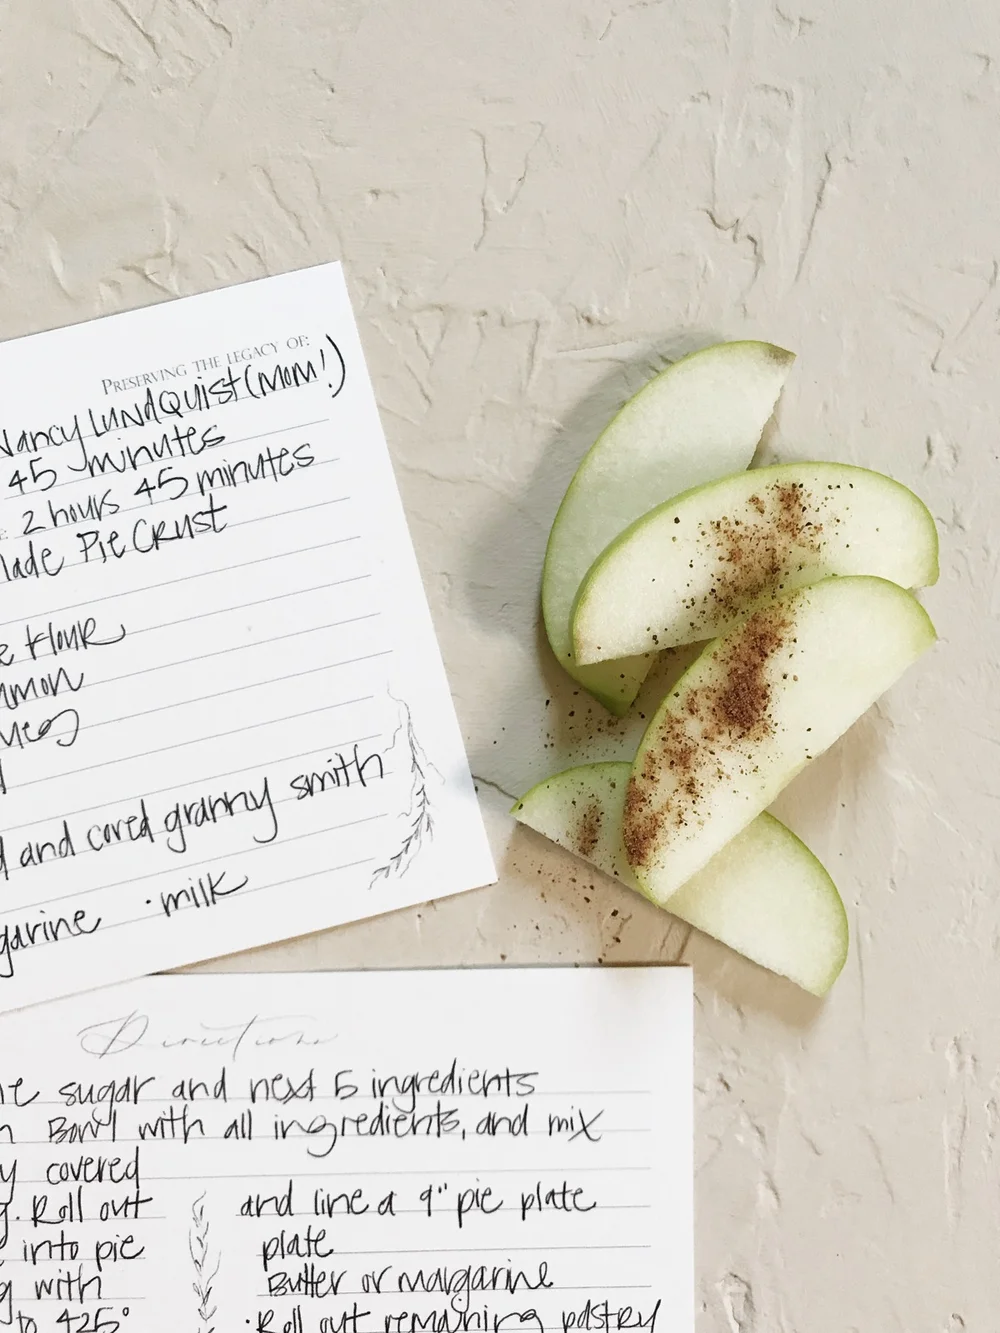 PRESERVING THE LEGACY OF:
Nancy Lundquist (mom!)
45 minutes
2 hours 45 minutes
Pie Crust
Flour
and cored granny smith
· milk
Directions
sugar and next 5 ingredients
Bowl with all ingredients, and mix
covered
Roll out
and line a 9" pie plate
into pie
plate
with
Butter or margarine
to 425°
· Roll out remaining pastry